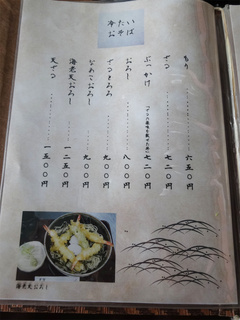 冷たい
おそば
もり 六五〇円
ざる 七二〇円
ぶっかけ 七二〇円
おろし 八〇〇円
ざるとろろ 九〇〇円
なめこおろし 九〇〇円
海老天おろし 一二五〇円
天ざる 一五〇〇円
海老天おろし